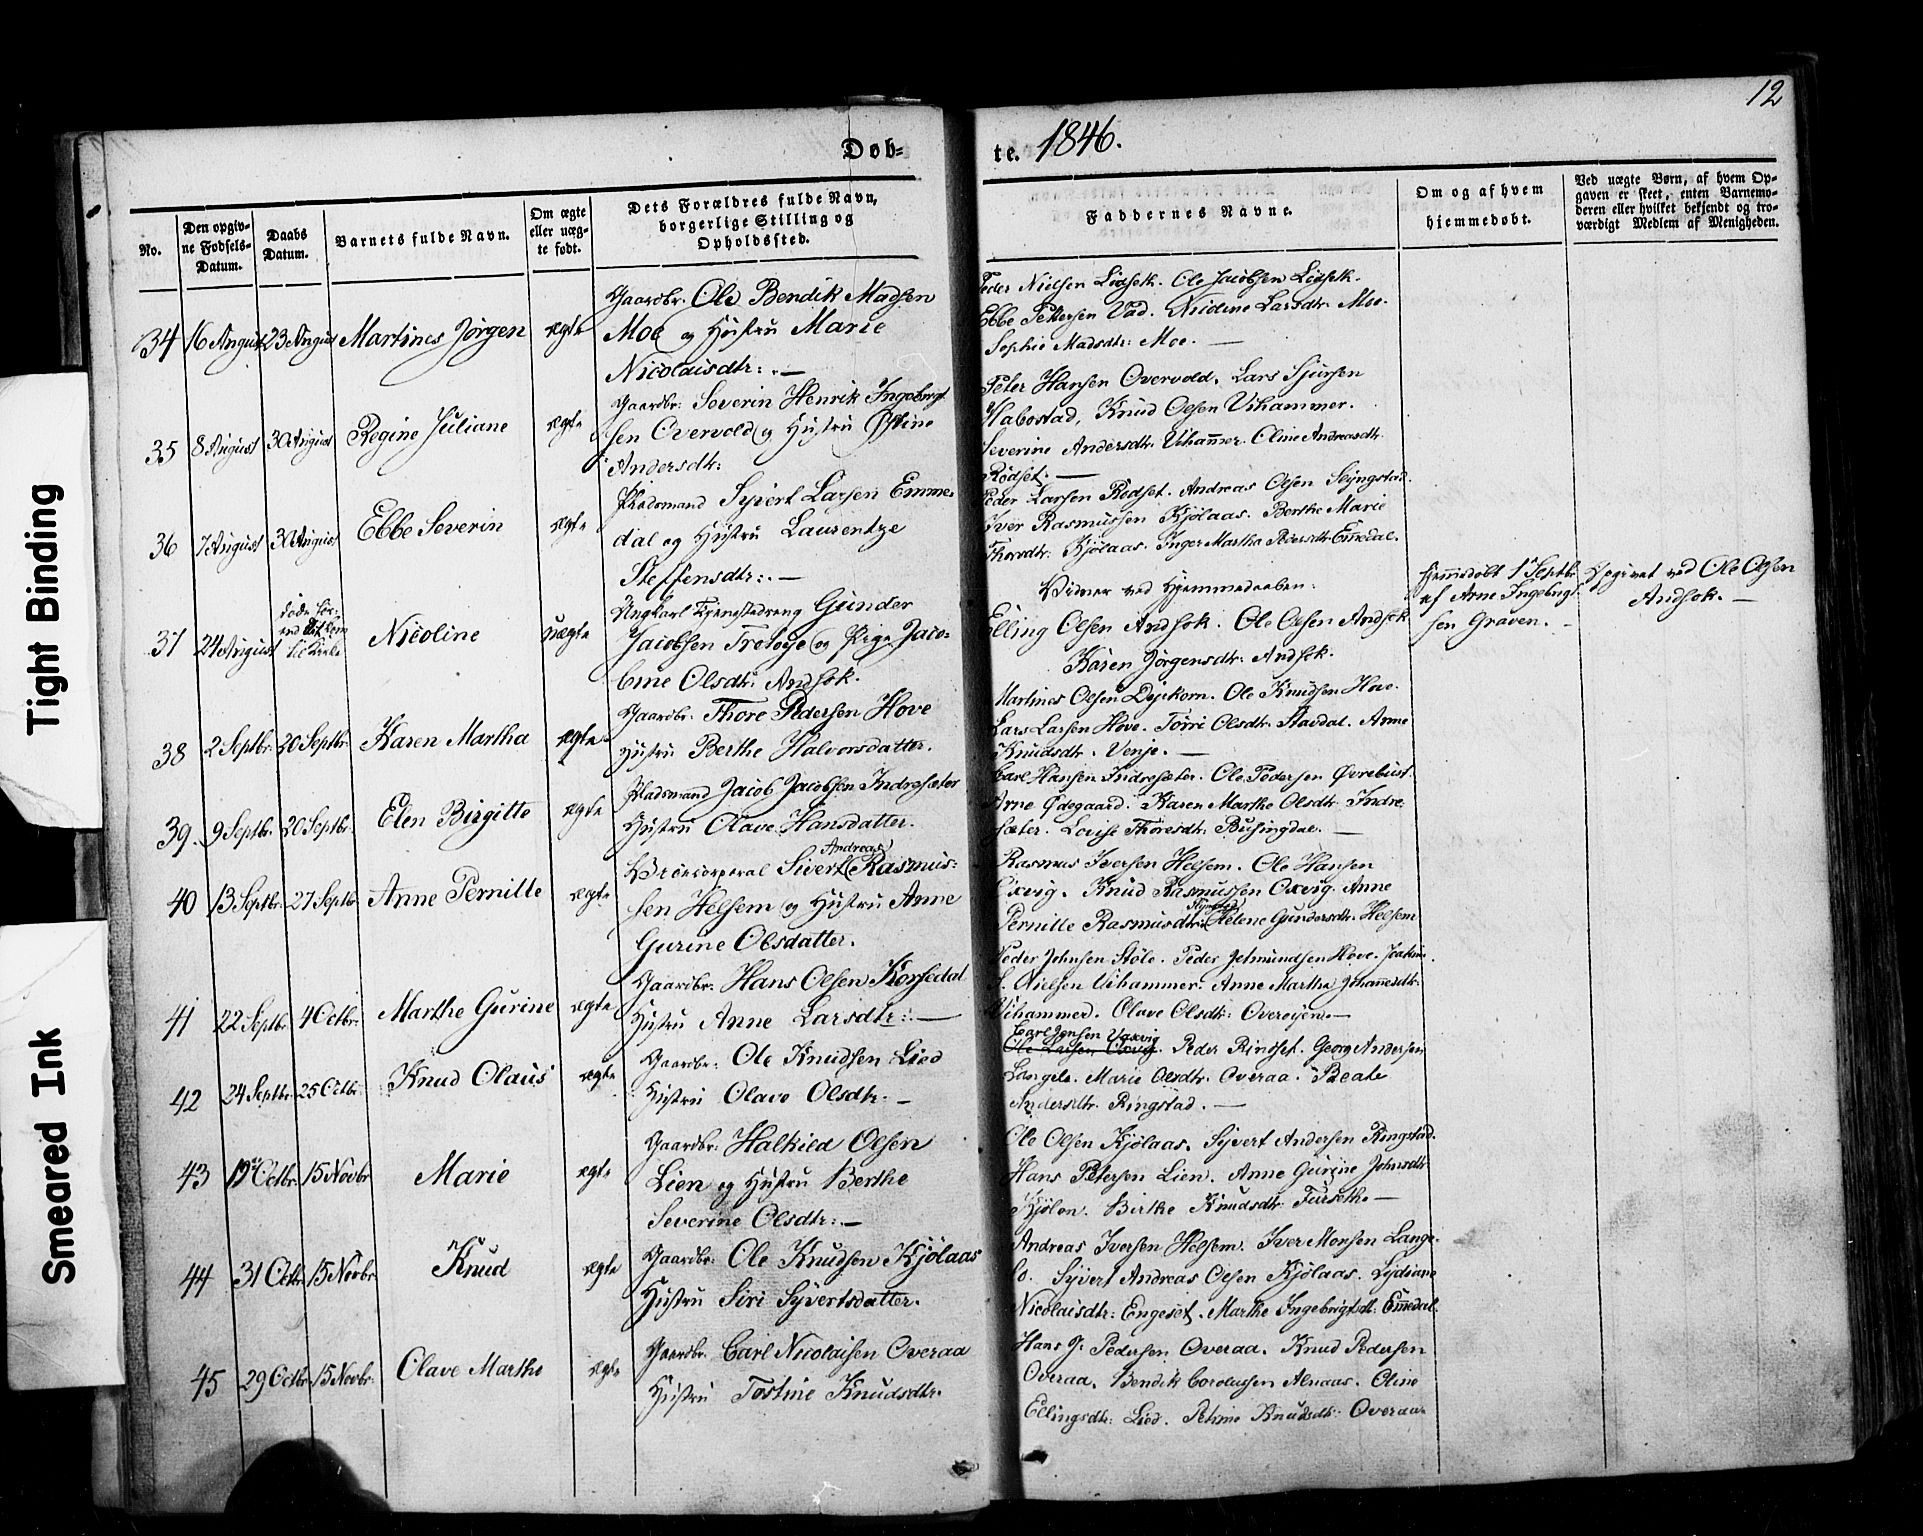 12
Døb-
te. 1846.
No.
Den opgiv-
ne Fødsels-
Datum.
Daabs
Datum.
Barnets fulde Navn.
Om ægte
eller uæg-
te født.
Dets Forældres fulde Navn,
borgerlige Stilling og
Opholdssted.
Faddernes Navne.
Om og af hvem
hjemmedøbt.
Ved uægte Børn, af hvem Op-
gaven er skeet, enten Barnemo-
deren eller hvilket bekjendt og tro-
værdigt Medlem af Menigheden.
34 16 August 23 August Martines Jørgen ægte
Gaardbr. Ole Bendik Madsen
Moe og Hustru Marie
Nicolaisdtr: . —
Peder Nielsen Lidsetk. Ole Jacobsen Lidsetk.
Ebbe Pettersen Vad. Nicoline Larsdtr. Moe.
Sophie Madsdtr: Moe. —
35 8 August 30 August Regine Juliane ægte
Gaardbr: Severin Henrik Ingebrigt
sen Overvold og Hustru Østine
Andersdtr:
Peter Hansen Overvold. Lars Sjursen
Habostad, Knud Olsen Vihammer.
Severine Andersdtr. Vihammer. Oline Andreasdtr.
Rødset. —
36 7 August 30 August Ebbe Severin ægte
Pladsmand Syvert Larsen Emme-
dal og Hustru Laurentze
Steffensdtr: . —
Peder Larsen Rødset. Andreas Olsen Slyngstad.
Iver Rasmussen Kjølaas. Berthe Marie
Thorsdtr: Kjølaas. Inger Martha Pedersdtr. Emedal.
37 24 August
døde før-
end det kom
til Kirke
Nicoline uægte
Ungkarl Tjenestedreng Gunder
Jacobsen Tretøye og Pige Jaco-
bine Olsdtr: Andsok.
Vidner ved Hjemmedaaben:
Elling Olsen Andsok. Ole Olsen Andsok
Karen Jørgensdtr: Andsok.
Hjemmedøbt 1ste Septbr.
af Arne Ingebrigt
sen Graven. —
Opgivet ved Ole Olsen
Andsok. —
38 2 Septbr. 20 Septbr. Karen Martha ægte
Gaardbr. Thore Pedersen Hove
Hustru Berthe Halvorsdatter.
Martines Olsen Dyrkorn. Ole Knudsen Hove.
Lars Larsen Hove. Torri Olsdtr. Stavdal. Anne
Knudsdtr. Venje. —
39. 9 Septbr. 20 Septbr. Elen Birgitte ægte
Pladsmand Jacob Jacobsen Indresæter
Hustru Olave Hansdatter.
Carl Hansen Indresæter. Ole Pedersen Øvrebust.
Arne Ødegaard. Karen Marthe Olsdtr. Indre
sæter. Lovise Thoresdtr: Busingdal. —
40 13 Septbr. 27 Septbr. Anne Pernille ægte
Andreas
Sivert Rasmus-
sen Helsem og Hustru Anne
Gurine Olsdatter.
Rasmus Iversen Helsem. Ole Hansen
Oxvig. Knud Rasmussen Oxvig. Anne
Pernille Rasmusdtr: Helene Gundersdtr. Helsem
41 22 Septbr. 4 Octbr. Marthe Gurine ægte
Gaardbr. Hans Olsen Korsedal
Hustru Anne Larsdtr: . —
Peder Johnsen Støle. Peder Jetmundsen Hove. Joakim
S. Nielsen Vihammer. Anne Martha Johannesdtr.
Vihammer. Olave Olsdtr: Overøyen. —
42 24 Septbr. 25 Octbr. Knud Olaus ægte
Gaardbr. Ole Knudsen Lied
Hustru Olave Olsdtr. —
Carl Jensen Vaxvig
Ole Larsen Oxvig. Peder Rindset. Georg Andersen
Langelo. Marie Olsdtr. Overaa. Beate
Andersdtr. Ringstad. —
43 19de Octbr. 15 Novbr Marie ægte
Gaardbr. Halkild Olsen
Lien og Hustru Berthe
Severine Olsdtr: . —
Ole Olsen Kjølaas. Syvert Andersen Ringstad.
Hans Petersen Lien. Anne Gurine Johnsdtr
Kjølen. Birthe Knudsdtr. Fursetk. —
44 31 Octbr 15 Novbr. Knud ægte
Gaardbr. Ole Knudsen Kjølaas
Hustru Siri Syvertsdatter.
Andreas Iversen Helsem. Iver Monsen Lange-
lo. Syvert Andreas Olsen Kjølaas. Lydiane
Nicolaisdtr: Engeset. Marthe Ingebrigtsdt. Emedal.
45 29 Octbr. 15 Novbr. Olave Marthe ægte
Gaardbr. Carl Nicolaisen Overaa
Hustru Tostine Knudsdtr.
Hans J. Pedersen Overaa. Knud Pedersen
Overaa. Bendik Corolussen Alnaas. Oline
Ellingsdtr: Lied. Petrine Knudsdtr. Overaa.
Tight Binding
Smeared Ink